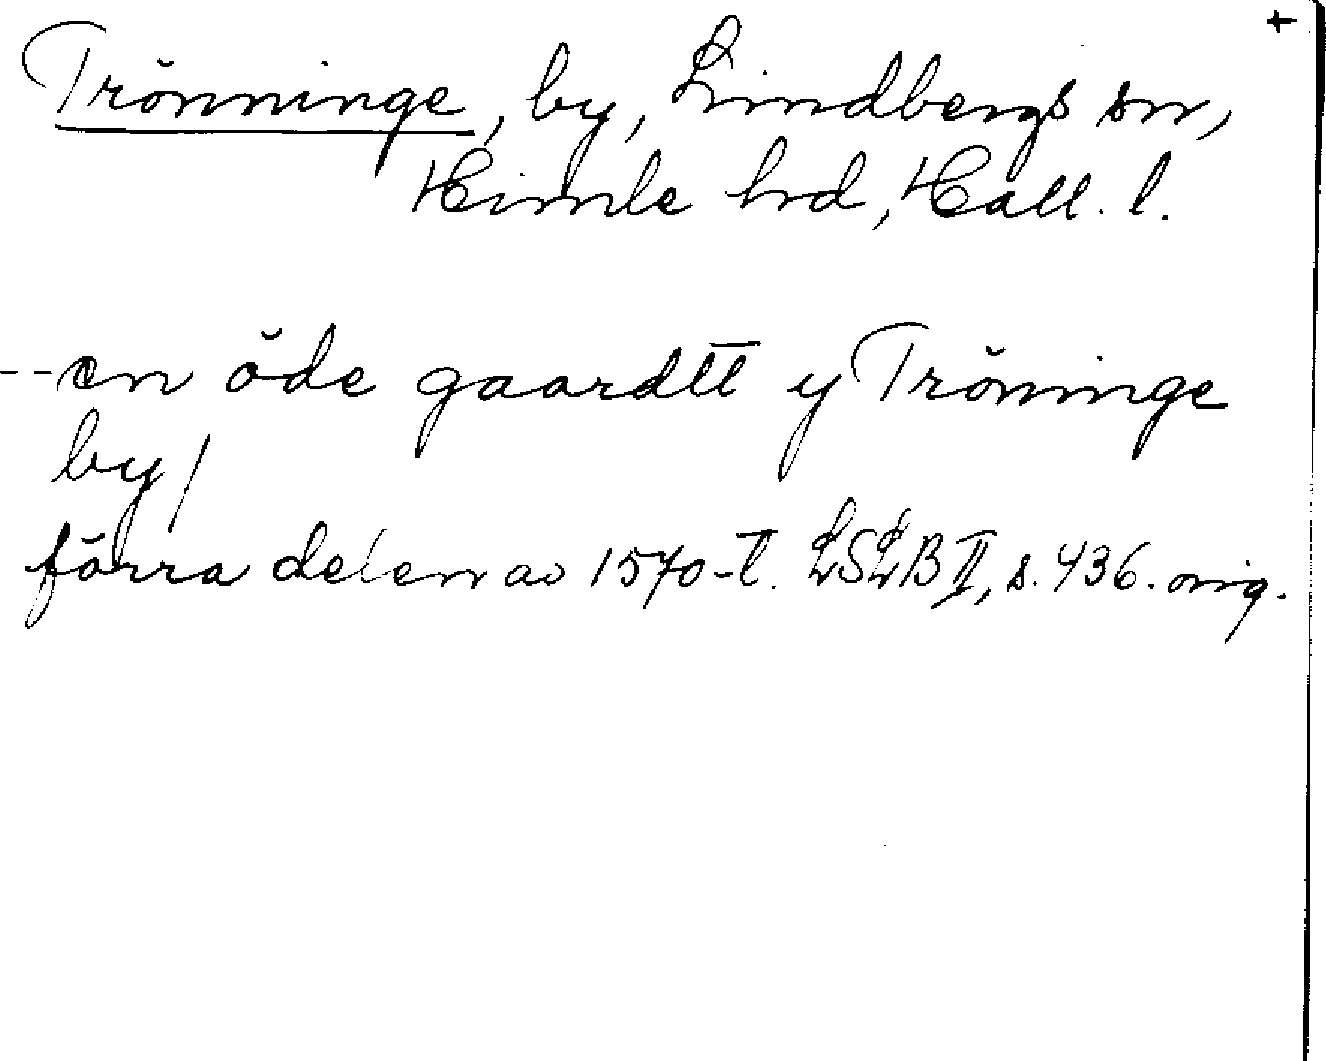 +
Trönninge, by, Lindbergs sn,
Himle hrd, Hall. l.
--en öde gaardtt y Tröninge
by/
förra delen av 1570-t. LSLB II, s. 436. orig.